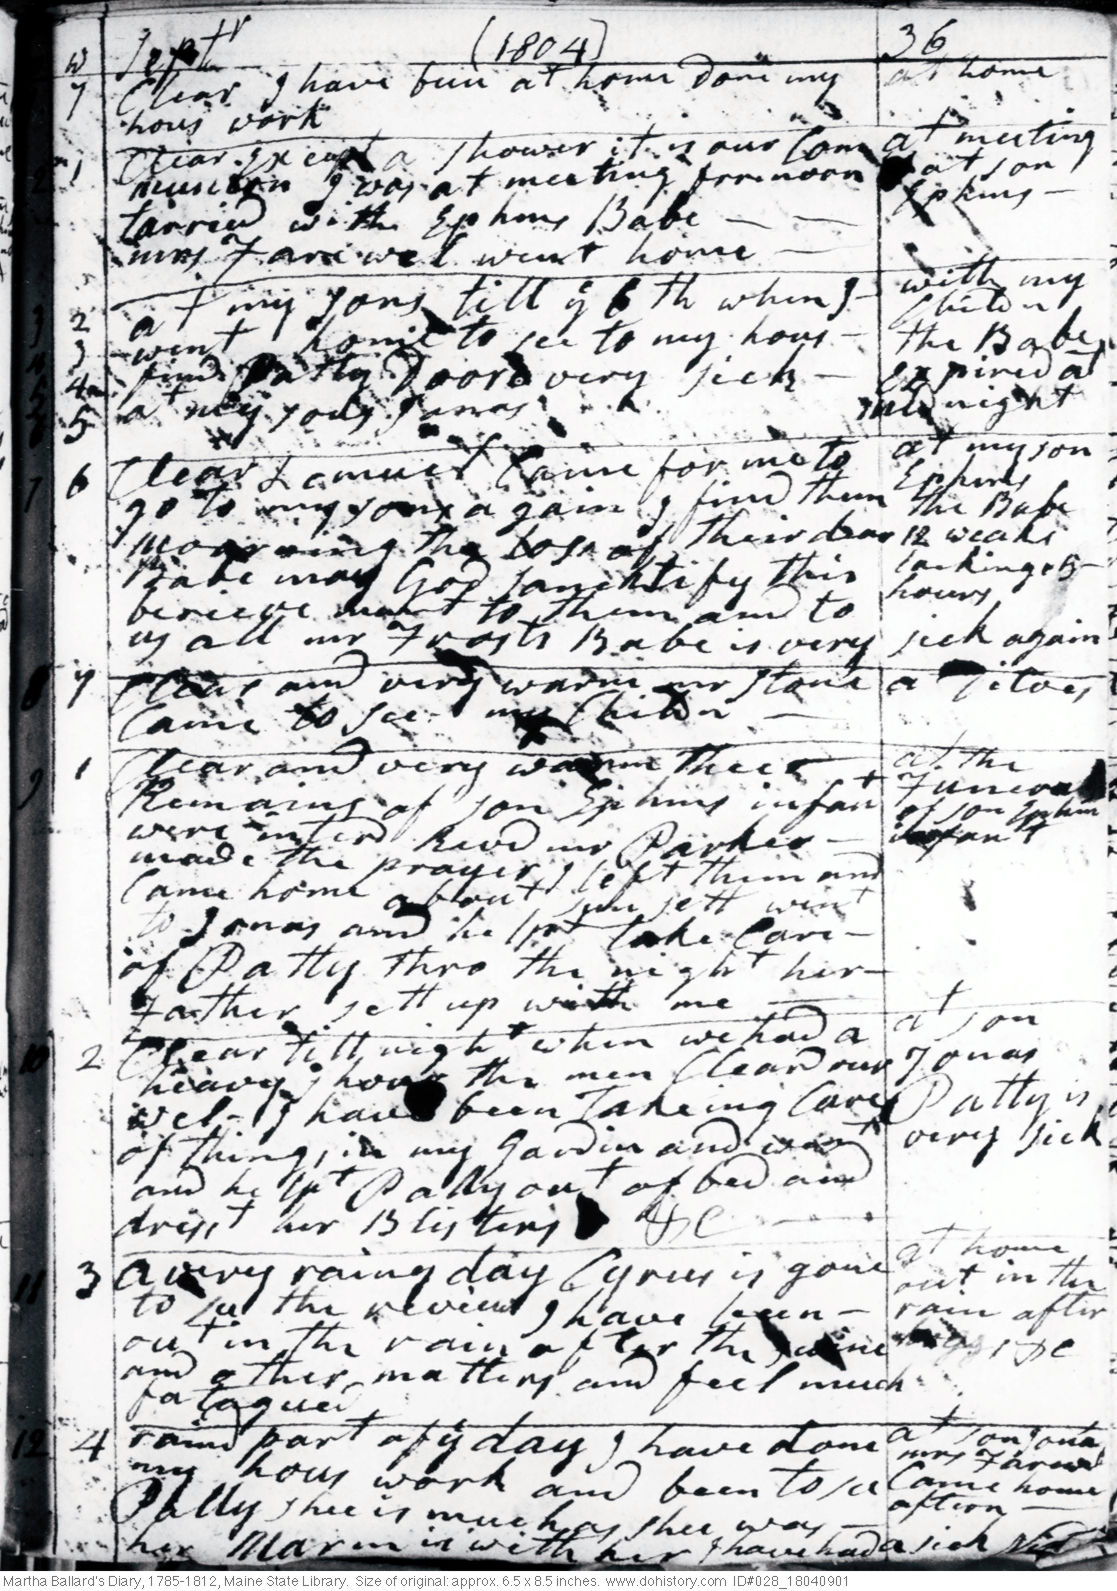 Septr (1804) 36
w
7 Clear I have been at home Done my
hous work
at home
1 Clear Except a shower it is our Com
munion I was at meeting forenoon
tarried with Ephms Babe — —
mrs Farewel went home —
at meeting
at son
Ephms —
3 2 at my sons till ye 6th when I
4 3 went home to see to my hous —
5 4 find Patty Doore very sick —
6 5 at my sons Jonas
with my
Childn
the Babe
Expired at
mid night
7 6 Clear Lemuel Came for me to
go to my sons again I find them
moarning the loss of their dear
Babe may God sanchtify this
berievement to them and to
us all mr Frosts Babe is very
sick again
at my son
Ephms
the Babe
12 weaks
lacking 5
hours
8 7 Clear and very warm mr Stone
Came to see my Childn —
at ditoes
9 1 Clear and very warm thee
Remains of son Ephms infant
were interd Revd mr Parker —
made the prayer I left them and
Came home about sun sett went
to Jonas and helpt take Care —
of Patty thro the night her —
Father sett up with me —
at the
Funeral
of son Ephm
infant
10 2 Clear till night when we had a
heavy shour the men Cleard our
wel - I have been Takeing Care
of things in my Gardin and went
and helpt Patty out of bed and
drisst her Blisters &C —
at son
Jonas
Patty is
very sick
11 3 a very rainy day Cyrus is gone
to see the review I have been —
out in the rain after the swine
and other matters and feel much
fatagued
at home
out in the
rain after
hoggs &C
12 4 raind part of ye day I have done
my hous work and been to see
Patty shee is much as shee was —
her Marm is with her I have had a sick
at son Jonas
mrs Farewel
Came home
aftern —
Martha Ballard's Diary, 1785-1812, Maine State Library. Size of original: approx. 6.5 x 8.5 inches. www.dohistory.com ID#028_18040901